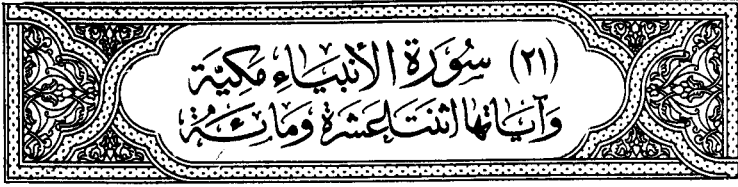 (٢١) سُورَة الأنبيَاءِ مَكيَّة
وَآيَاتها اثنَتَا عَشَرَة وَمَائَة